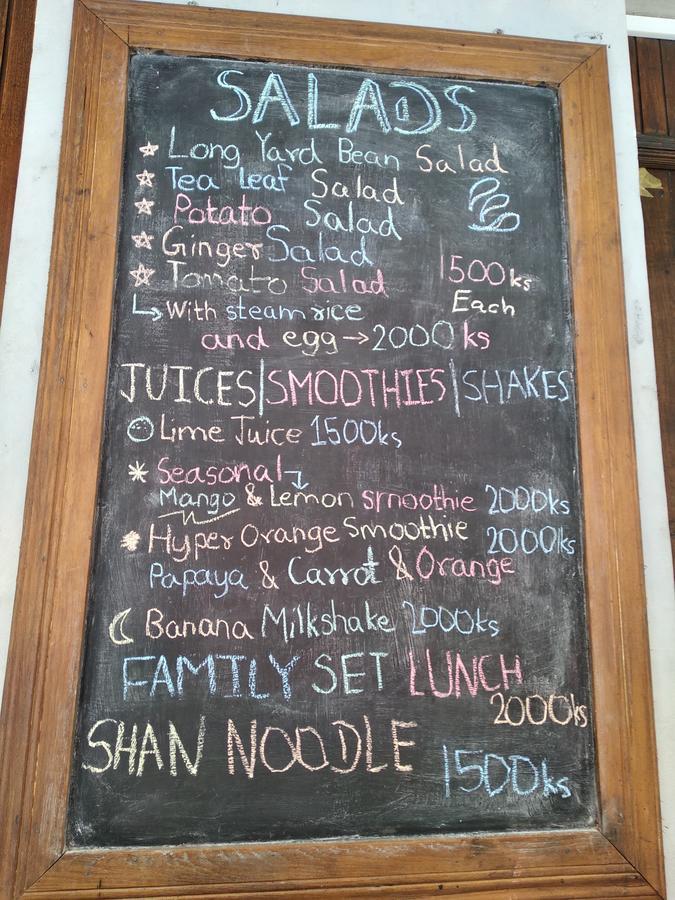 SALADS
Long Yard Bean Salad
Tea leaf Salad
Potato Salad
Ginger Salad
Tomato Salad 1500ks
Each
↳ With steam rice
and egg → 2000 ks
JUICES | SMOOTHIES | SHAKES
Lime Juice 1500ks
* Seasonal
Mango & Lemon smoothie 2000ks
Hyper Orange Smoothie 2000ks
Papaya & Carrot & Orange
Banana Milkshake 2000ks
FAMILY SET LUNCH
2000ks
SHAN NOODLE
1500ks